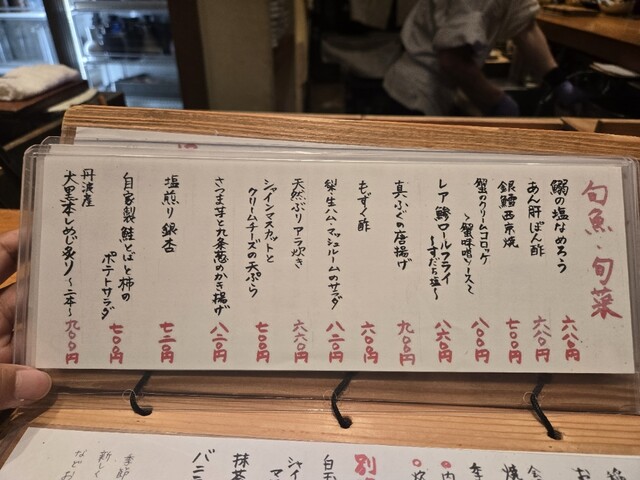 旬魚・旬菜
鰯の塩なめろう 六八〇円
あん肝ぽん酢 六八〇円
銀鱈西京焼 七〇〇円
蟹クリームコロッケ
〜蟹味噌ソース〜 八〇〇円
レア鯵ロールフライ
〜すだち塩〜 八六〇円
真ふぐの唐揚げ 九〇〇円
もずく酢 六〇〇円
梨・生ハム・マッシュルームのサラダ 八二〇円
天然ぶりアラ炊き 六六〇円
シャインマスカットと
クリームチーズの天ぷら 七〇〇円
さつま芋と九条葱のかき揚げ 八二〇円
塩煎り銀杏 七二〇円
自家製鮭とばと柿の
ポテトサラダ 七〇〇円
丹波産
大黒本しめじ炙り〜二本〜 九〇〇円
別
白玉
シャイ
マ
抹茶
バニ
季節
新しく
などお